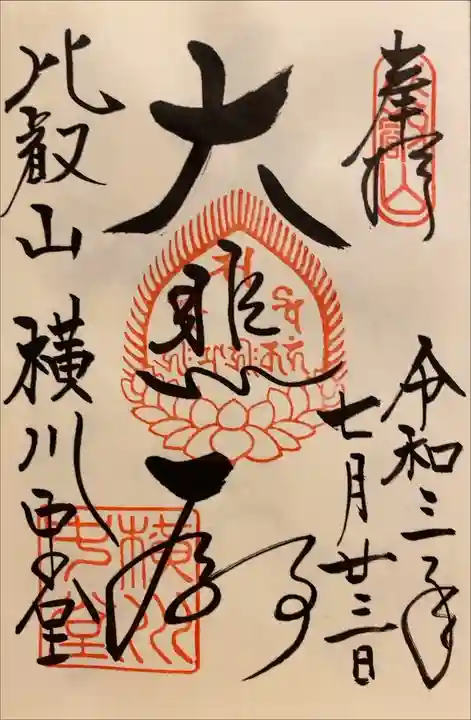 奉拝
比叡山
令和三年
七月廿三日
大悲殿
比叡山 横川中堂
横川中堂